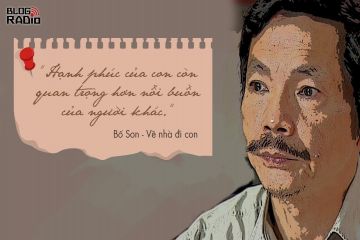 BLOG
RADIO
"Hạnh phúc của con còn
quan trọng hơn nỗi buồn
của người khác."
Bố Sơn - Về nhà đi con